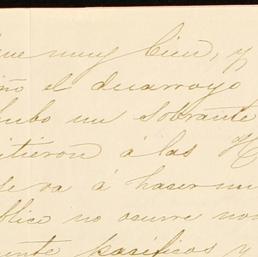 ue muy bien, y
el desarroyo
hubo un sobrante
itieron á las
se va á haser
blico no ocurre
ente pasificos y